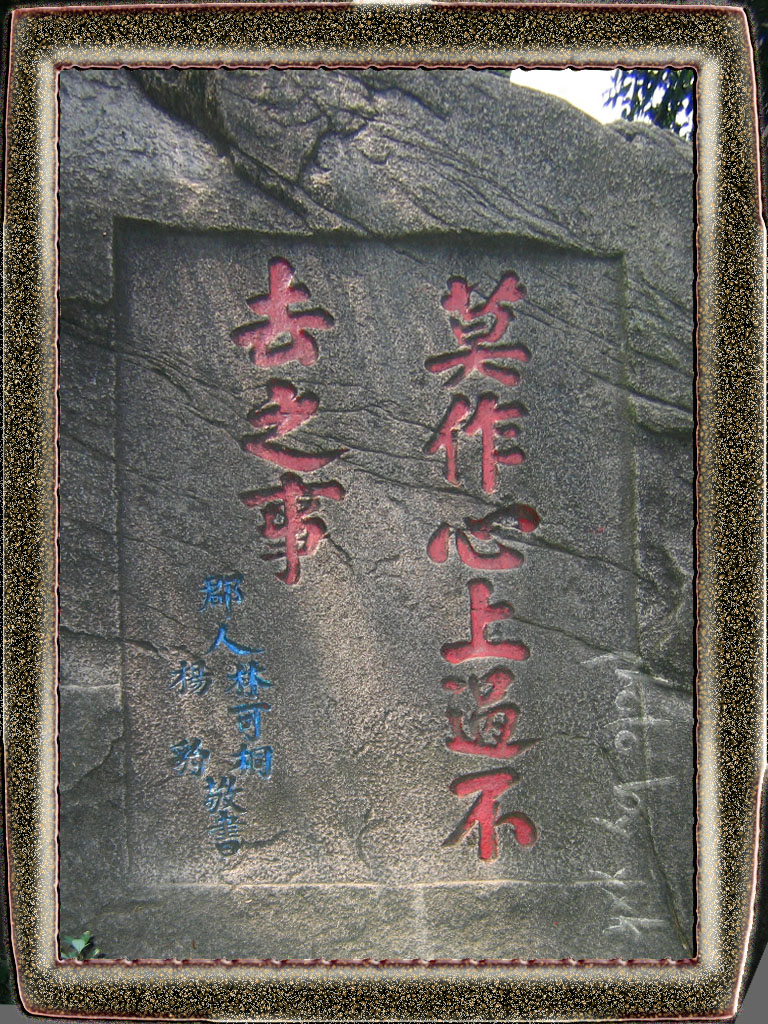 莫作心上過不
去之事
郡人林可桐
楊豹
敬書
photo by